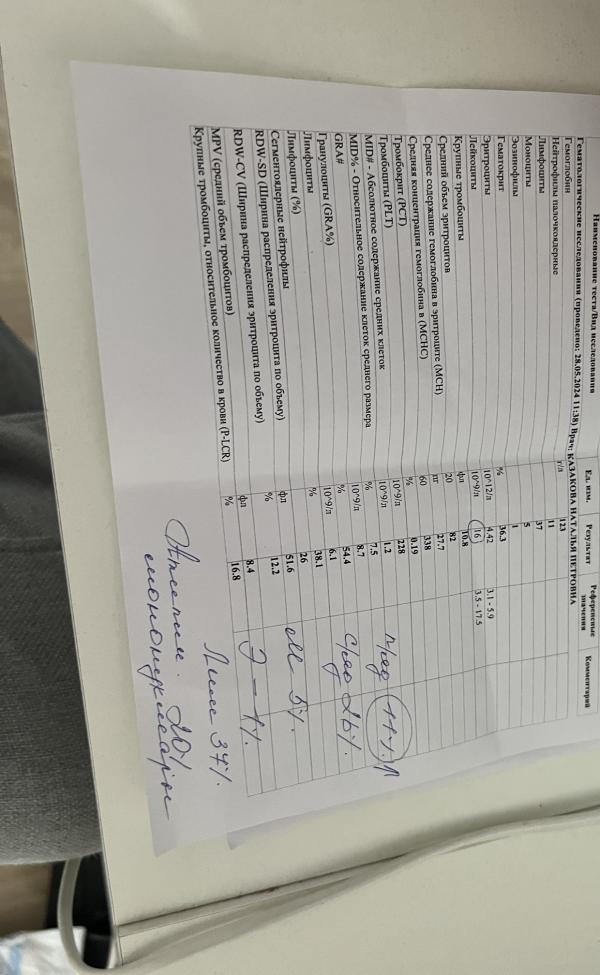 Наименование теста/Вид исследования Ед. изм. Результат Референсные значения Комментарий
Гематологические исследования (проведено: 28.05.2024 11:38) Врач: КАЗАКОВА НАТАЛЬЯ ПЕТРОВНА
Гемоглобин г/л 123
Нейтрофилы палочкоядерные 11
Лимфоциты 37
Моноциты 5
Эозинофилы 1
Гематокрит % 36.3
Эритроциты 10^12/л 4.42 3.1 - 5.9
Лейкоциты 10^9/л 16 5.5 - 17.5
Крупные тромбоциты фл 10.8
Средний объем эритроцитов 20 82
Среднее содержание гемоглобина в эритроците (MCH) пг 27.7
Средняя концентрация гемоглобина в (MCHC) 60 338
Тромбокрит (PCT) % 0.19
Тромбоциты (PLT) 10^9/л 228
MID# - Абсолютное содержание средних клеток 10^9/л 1.2
MID% - Относительное содержание клеток среднего размера % 7.5
GRA# 10^9/л 8.7
Гранулоциты (GRA%) % 54.4
Лимфоциты 10^9/л 6.1
Лимфоциты (%) % 38.1
Сегментоядерные нейтрофилы 26
RDW-SD (Ширина распределения эритроцита по объему) фл 51.6
RDW-CV (Ширина распределения эритроцита по объему) % 12.2
MPV (средний объем тромбоцитов) фл 8.4
Крупные тромбоциты, относительное количество в крови (P-LCR) % 16.8
п/яд 11%
с/яд 26%
м 5%
Э – 1%
Лимф 37%
Атипич. 20%
мононуклеары